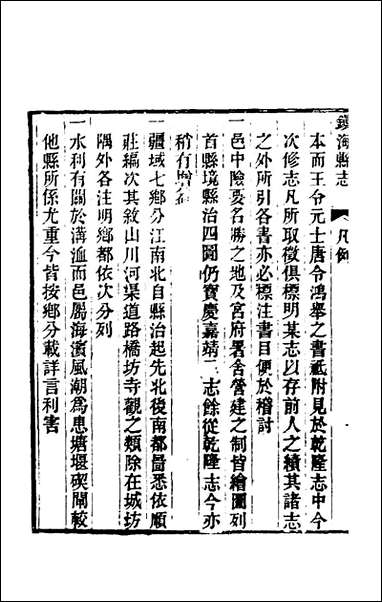 鎮海縣志 凡例
本而王令元士唐令鴻舉之書祗附見於乾隆志中今
次修志凡所取徵俱標明某志以存前人之績其諸志
之外所引各書亦必標注書目便於稽討
一邑中險要名勝之地及宮府署舍營建之制皆繪圖列
首縣境縣治四圖仍寶慶嘉靖二志餘從乾隆志今亦
稍有增
一疆域七鄉分江南北自縣治起先北後南都啚悉依順
莊編次其敘山川河渠道路橋坊寺觀之類除在城坊
隅外各注明鄉都依次分列
一水利有關於溝洫而邑屬海濱風潮為患塘堰碶閘較
他縣所係尤重今皆按鄉分載詳言利害